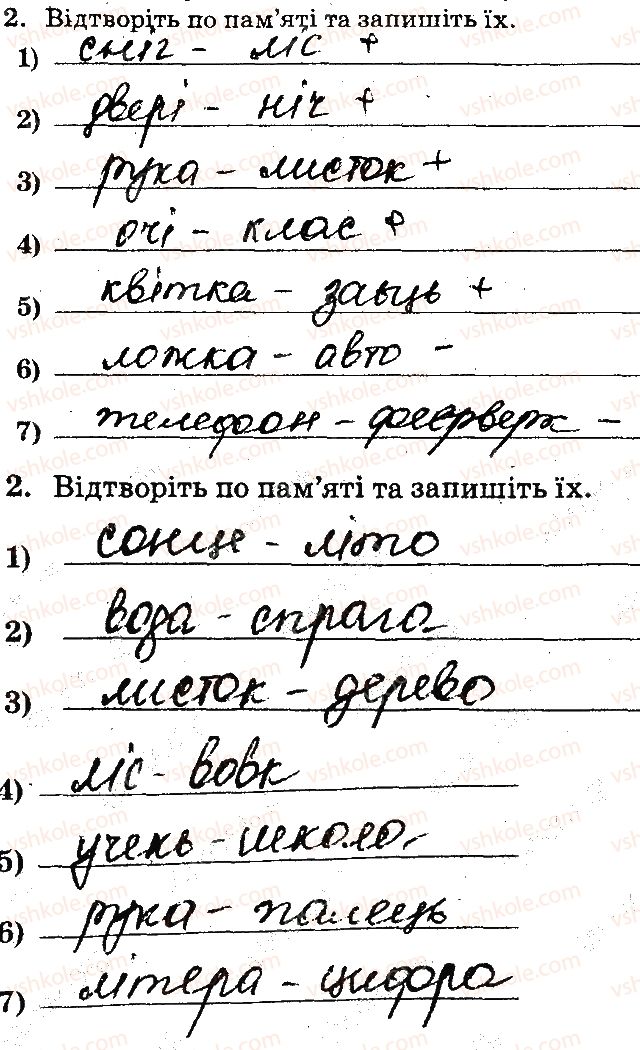 2. Відтворіть по пам'яті та запишіть їх.
1) сніг - ліс +
2) двері - ніч +
3) рука - листок +
4) очі - клас +
5) квітка - заьць +
6) ложка - авто -
7) телефон - феєрверк -
2. Відтворіть по пам'яті та запишіть їх.
1) сонце - літо
2) вода - спрага
3) листок - дерево
4) ліс - вовк
5) учень - школа
6) рука - палець
7) літера - цифра